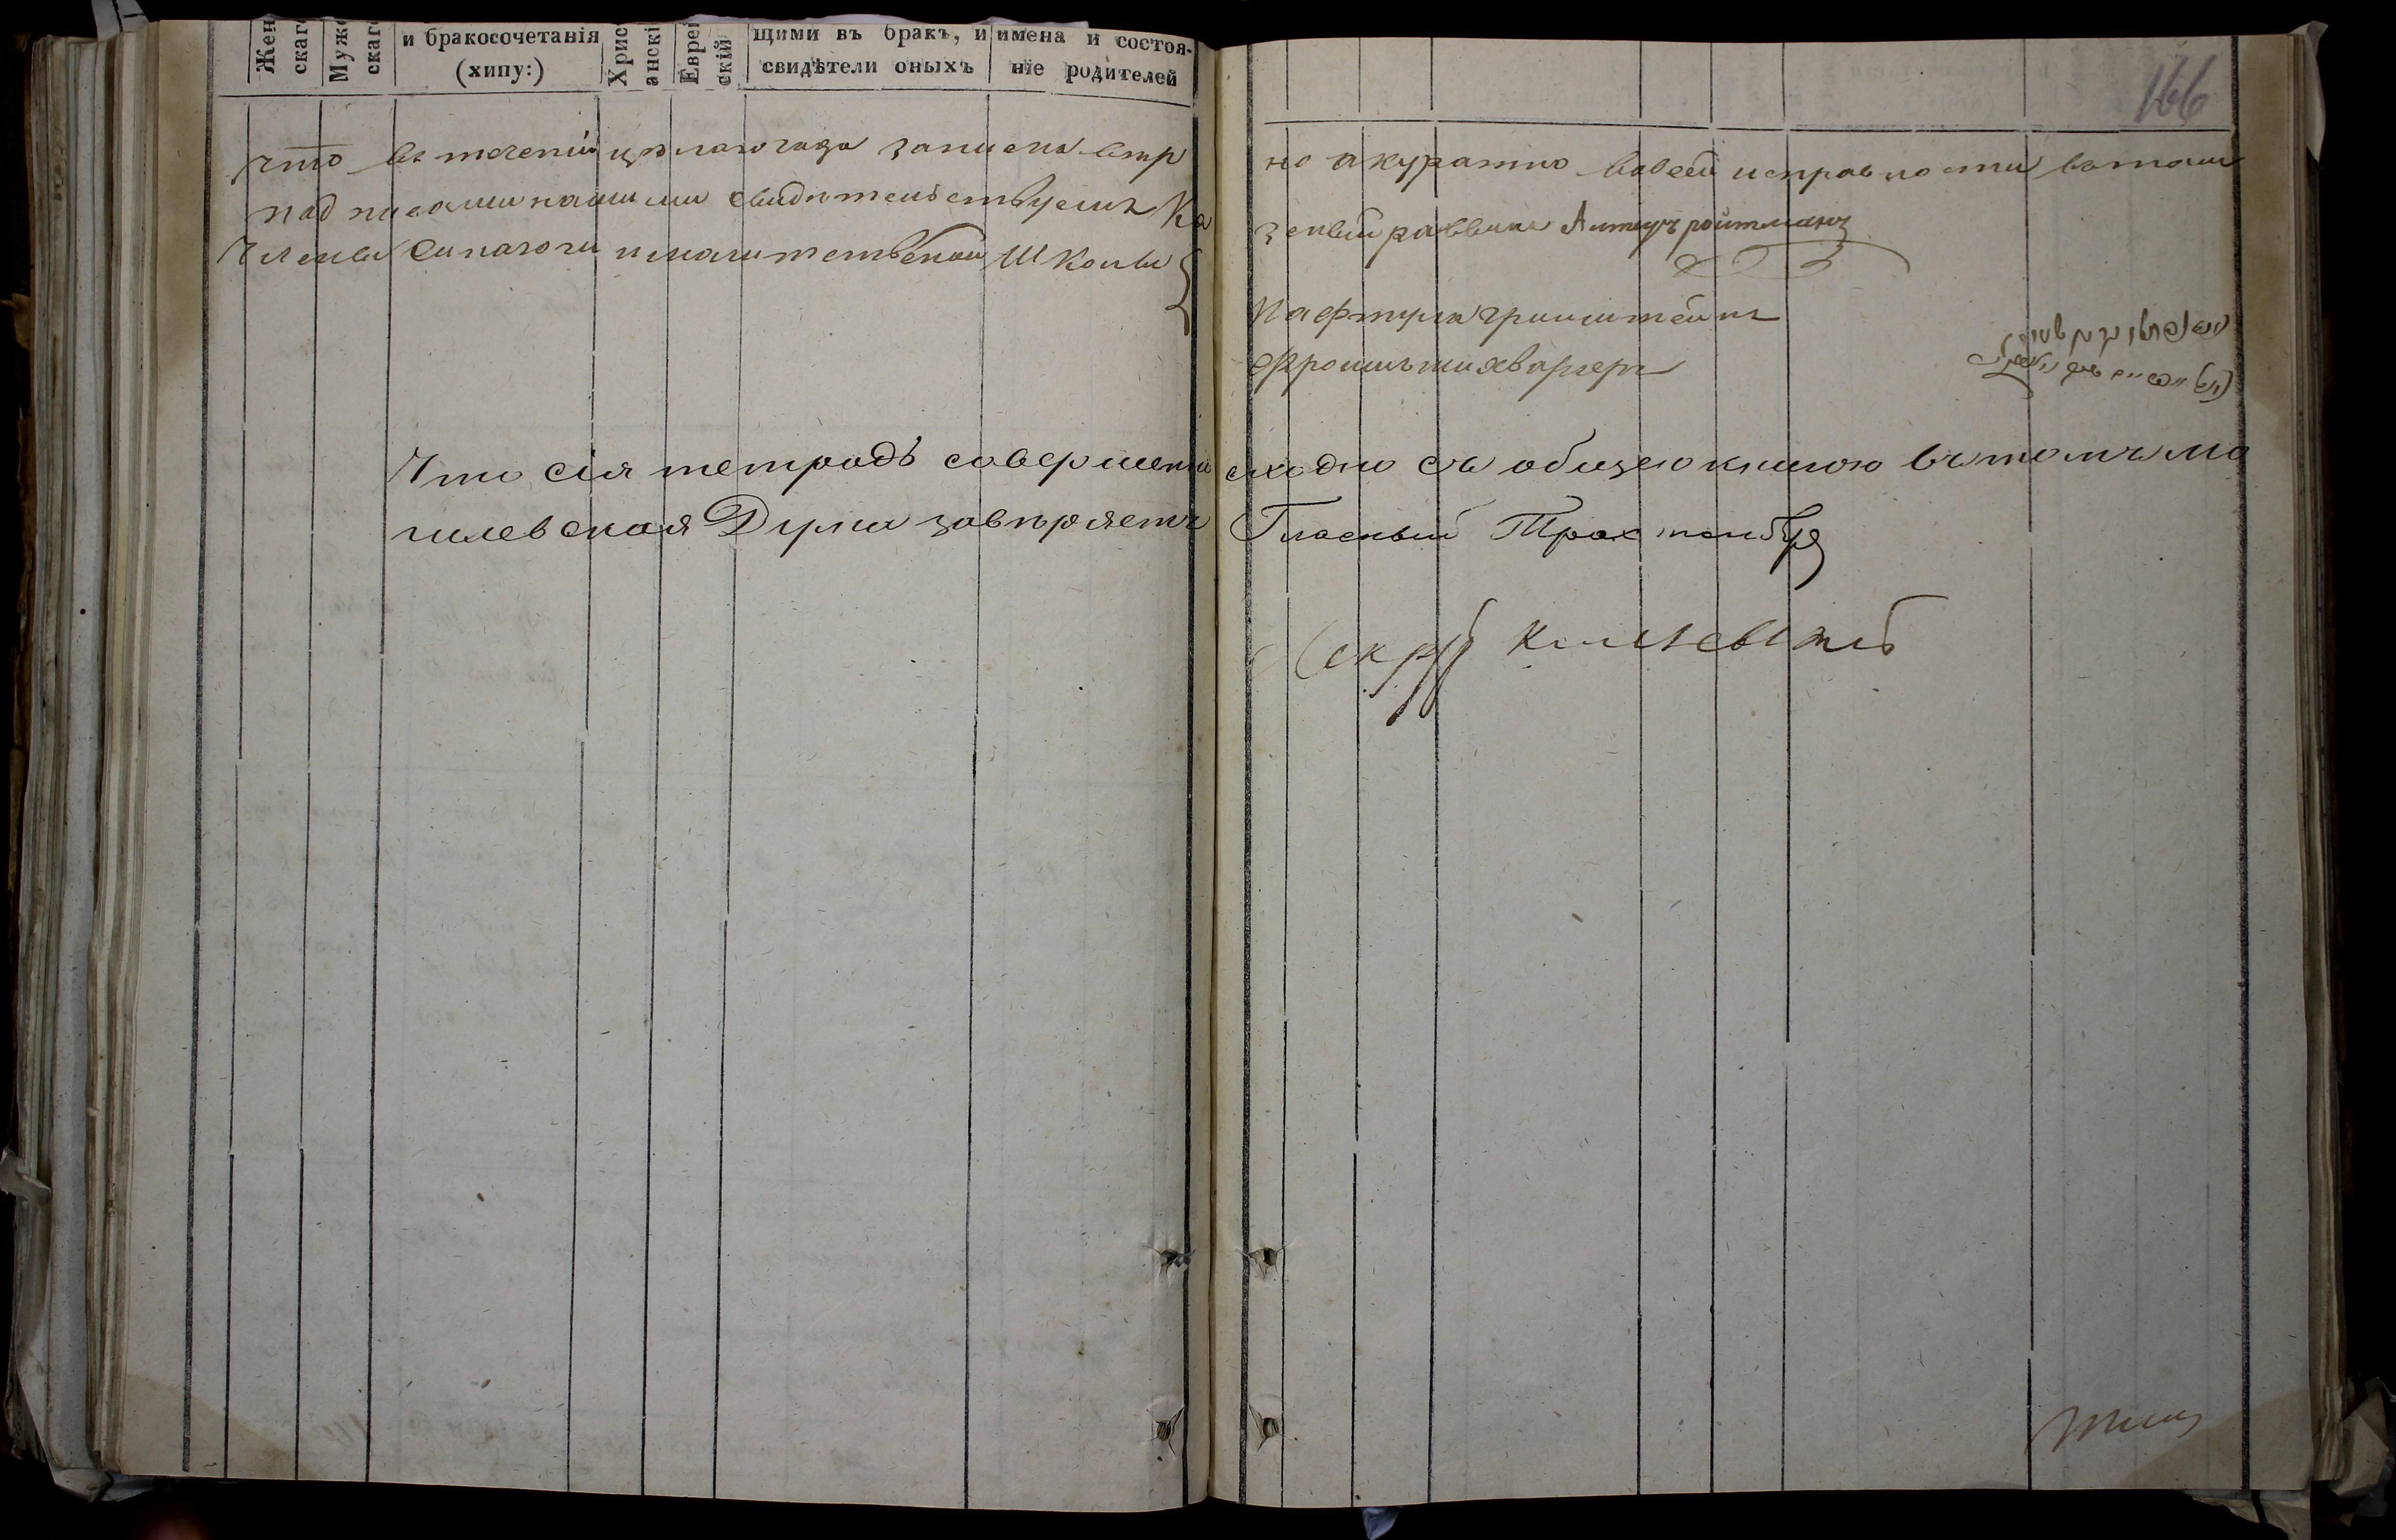 Жен
скаг
Муже
скаг
и бракосочетанія
(хипу:)
Хрис
анскі
Еврей
скій
щими въ бракъ, и
свидѣтели оныхъ
имена и состоя-
ніе родителей
166
что въ теченіи цѣлаго года записка вѣр но акуратно во всей исправности въ томъ
подписами нашими свидѣтельствуемъ Ка зенный раввинъ Ройтманъ
Члены Синагоги и молитвенной Школы
Нафтула Гринштейнъ
Фроимъ Шварцеръ
Что сія тетрадь совершенно сходно съ общею книгою въ томъ Мо
гилевская Дума завѣряетъ Гласный Трахтенбр
Секр